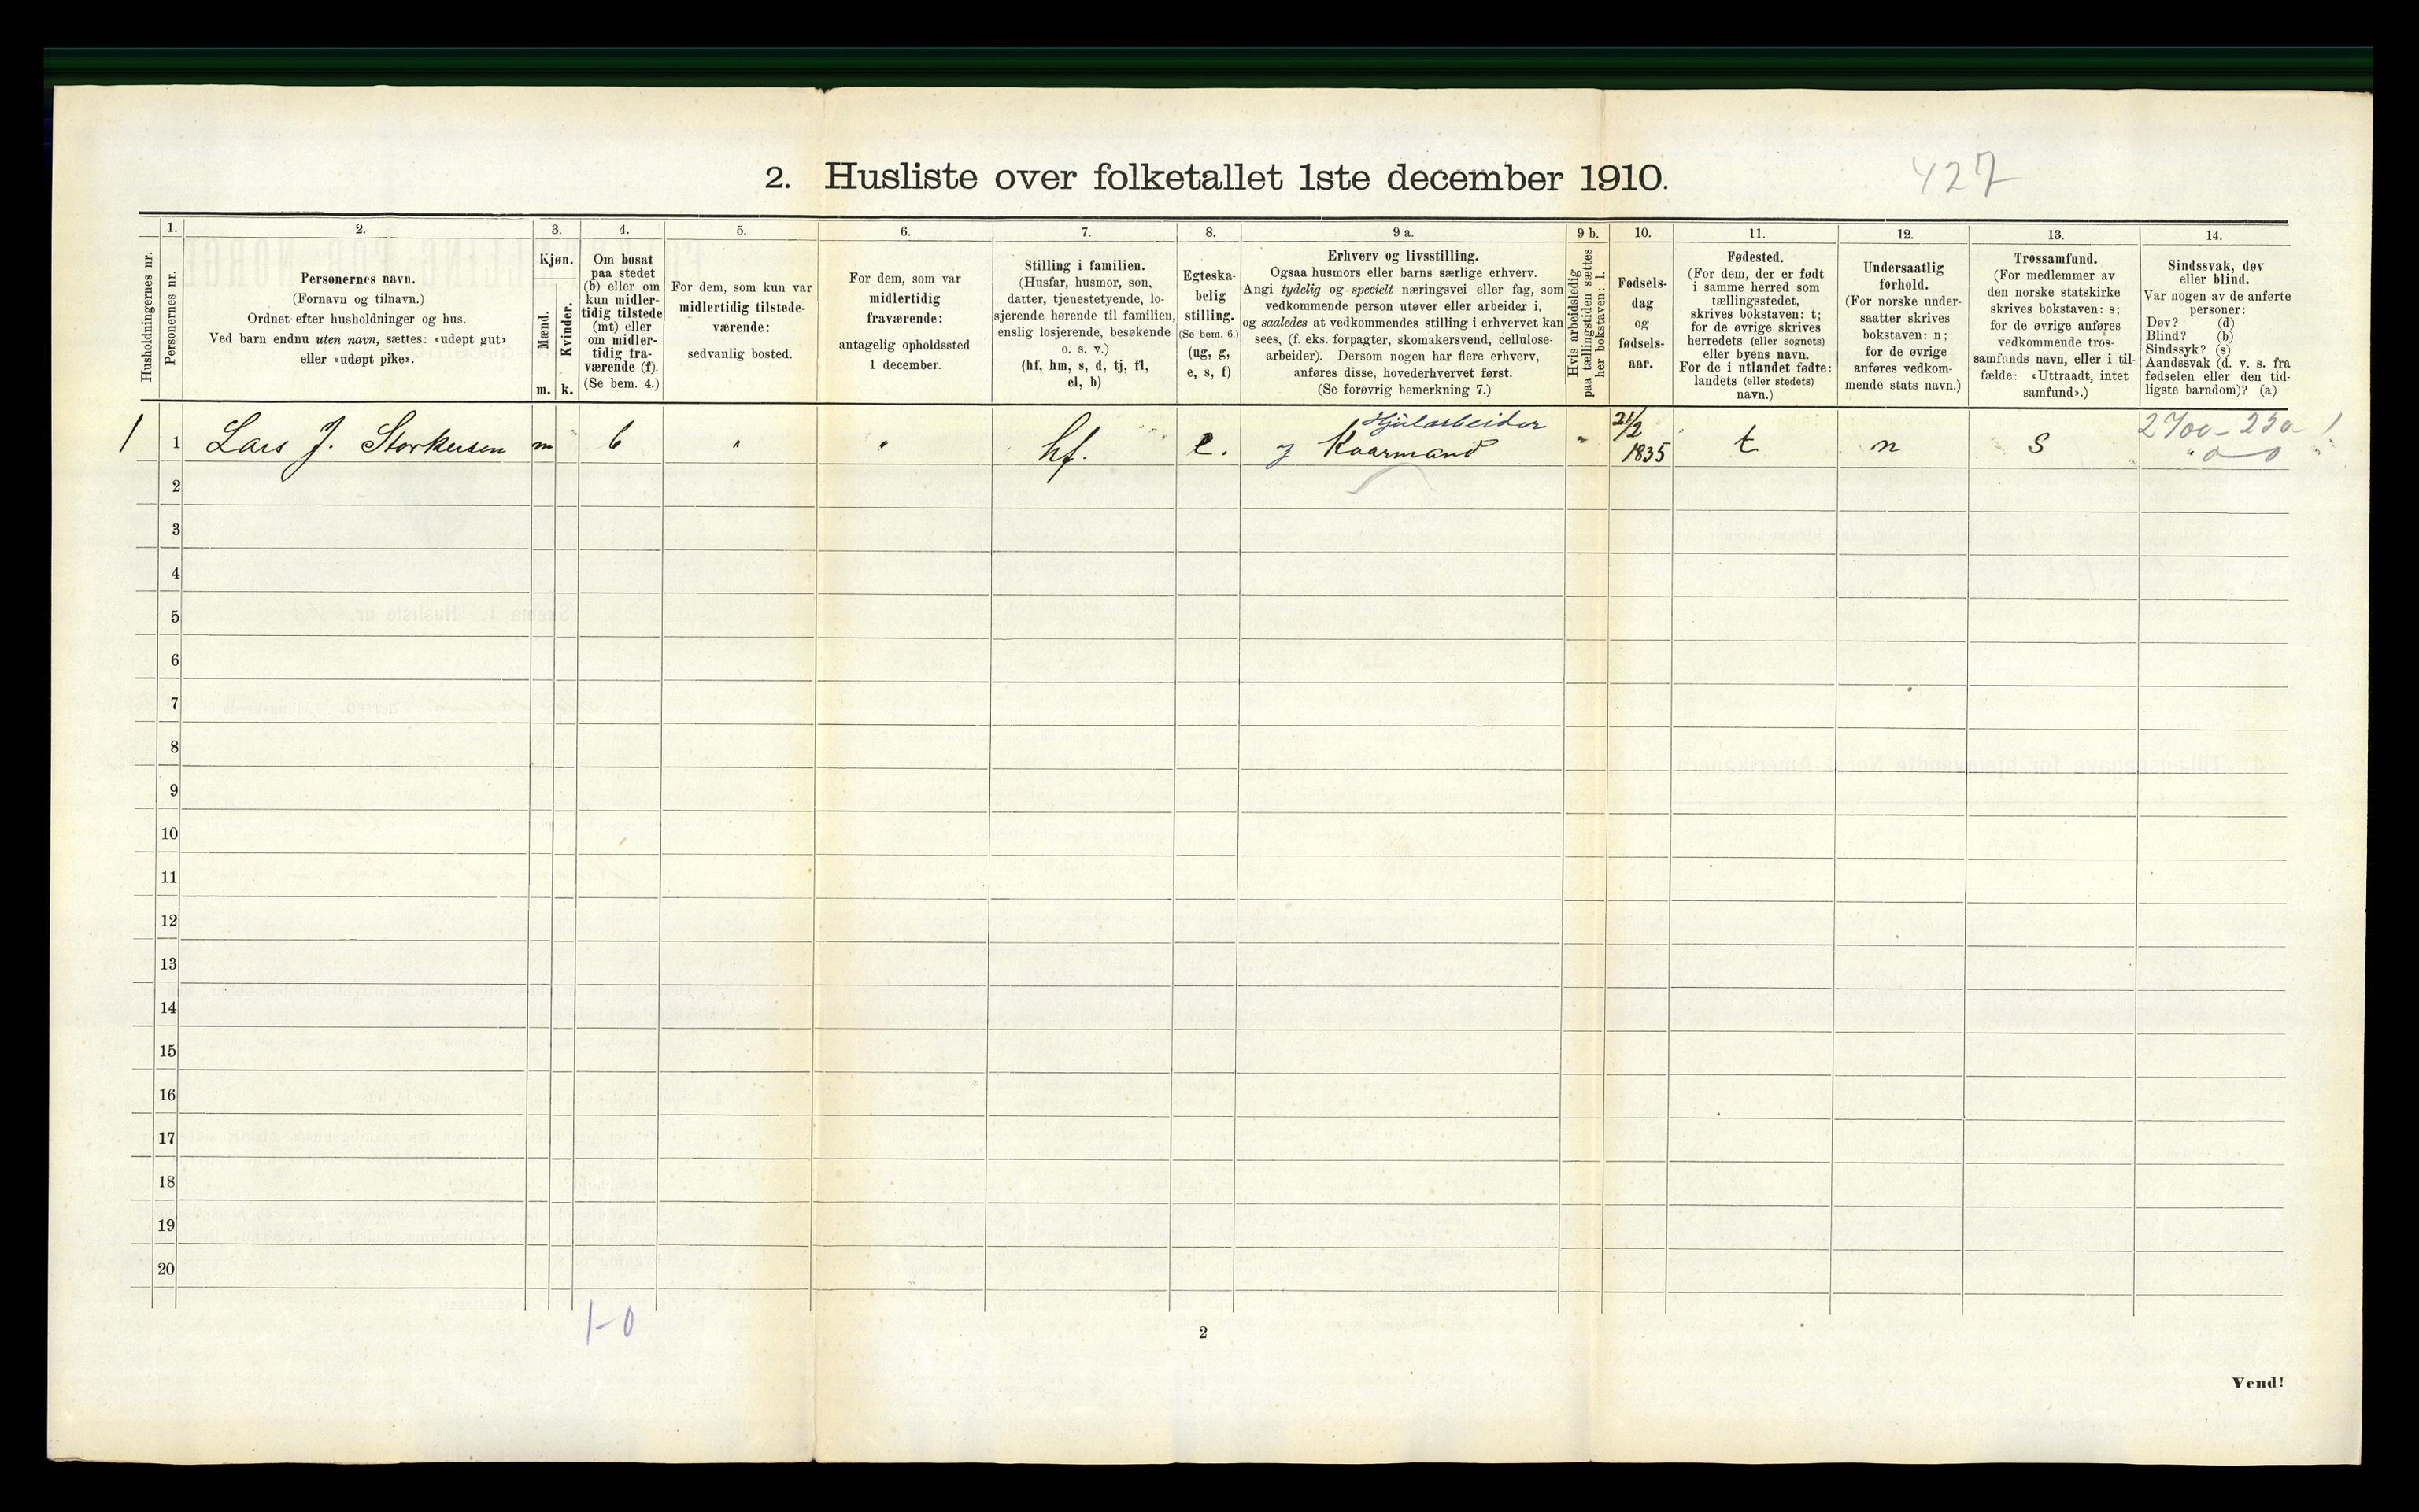 2. Husliste over folketallet 1ste december 1910.
427
Husholdningernes nr.
1.
Personernes nr.
2.
Personernes navn.
(Fornavn og tilnavn.)
Ordnet efter husholdninger og hus.
Ved barn endnu uten navn, sættes: «udøpt gut»
eller «udøpt pike».
3.
Kjøn.
Mænd.
m.
Kvinder.
k.
4.
Om bosat
paa stedet
(b) eller om
kun midler-
tidig tilstede
(mt) eller
om midler-
tidig fra-
værende (f).
(Se bem. 4.)
5.
For dem, som kun var
midlertidig tilstede-
værende:
sedvanlig bosted.
6.
For dem, som var
midlertidig
fraværende:
antagelig opholdssted
1 december.
7.
Stilling i familien.
(Husfar, husmor, søn,
datter, tjenestetyende, lo-
sjerende hørende til familien,
enslig losjerende, besøkende
o. s. v.)
(hf, hm, s, d, tj, fl,
el, b)
8.
Egteska-
belig
stilling.
(Se bem. 6.)
(ug, g,
e, s, f)
9 a.
Erhverv og livsstilling.
Ogsaa husmors eller barns særlige erhverv.
Angi tydelig og specielt næringsvei eller fag, som
vedkommende person utøver eller arbeider i,
og saaledes at vedkommendes stilling i erhvervet kan
sees, (f. eks. forpagter, skomakersvend, cellulose-
arbeider). Dersom nogen har flere erhverv,
anføres disse, hovederhvervet først.
(Se forøvrig bemerkning 7.)
9 b.
Hvis arbeidsledig
paa tællingstiden sættes
her bokstaven: l.
10.
Fødsels-
dag
og
fødsels-
aar.
11.
Fødested.
(For dem, der er født
i samme herred som
tællingsstedet,
skrives bokstaven: t;
for de øvrige skrives
herredets (eller sognets)
eller byens navn.
For de i utlandet fødte:
landets (eller stedets)
navn.)
12.
Undersaatlig
forhold.
(For norske under-
saatter skrives
bokstaven: n;
for de øvrige
anføres vedkom-
mende stats navn.)
13.
Trossamfund.
(For medlemmer av
den norske statskirke
skrives bokstaven: s;
for de øvrige anføres
vedkommende tros-
samfunds navn, eller i til-
fælde: «Uttraadt, intet
samfund».)
14.
Sindssvak, døv
eller blind.
Var nogen av de anførte
personer:
Døv? (d)
Blind? (b)
Sindssyk? (s)
Aandssvak (d. v. s. fra
fødselen eller den tid-
ligste barndom)? (a)
Hjularbeider
1 1 Lars J. Storkersen m b " " hf. e. Kaarmand " 21/2 1835 t n s
2
3
4
5
6
7
8
9
10
11
12
13
14
15
16
17
18
19
20
1-0
2
Vend!